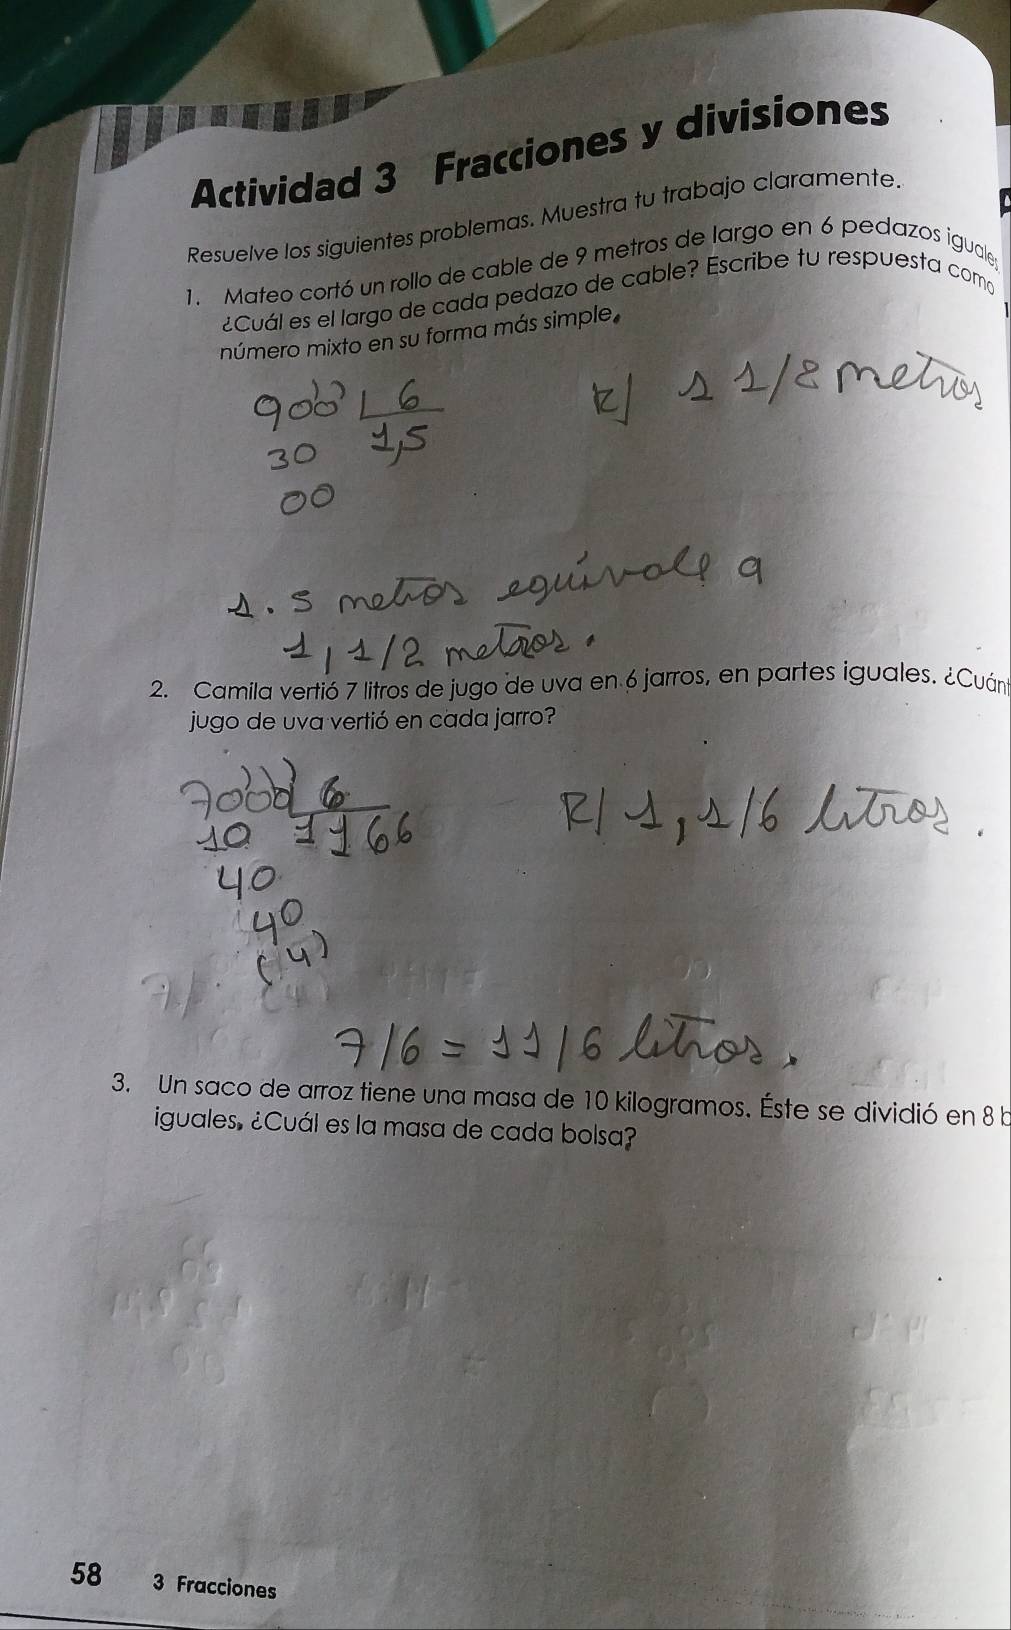 Actividad 3 Fracciones y divisiones
Resuelve los siguientes problemas. Muestra tu trabajo claramente.
1. Mateo cortó un rollo de cable de 9 metros de largo en 6 pedazos iguales.
¿Cuál es el largo de cada pedazo de cable? Escribe tu respuesta como
número mixto en su forma más simple.
900 6
30 1,5
00
R/ 1 1/2 metros
1.5 metros equivale a
1, 1/2 metros.
2. Camila vertió 7 litros de jugo de uva en 6 jarros, en partes iguales. ¿Cuánt
jugo de uva vertió en cada jarro?
7000 6
10 1166
40
40
(4)
R/ 1, 1/6 litros.
7/6 = 11/6 litros.
3. Un saco de arroz tiene una masa de 10 kilogramos. Éste se dividió en 8 b
iguales, ¿Cuál es la masa de cada bolsa?
58 3 Fracciones